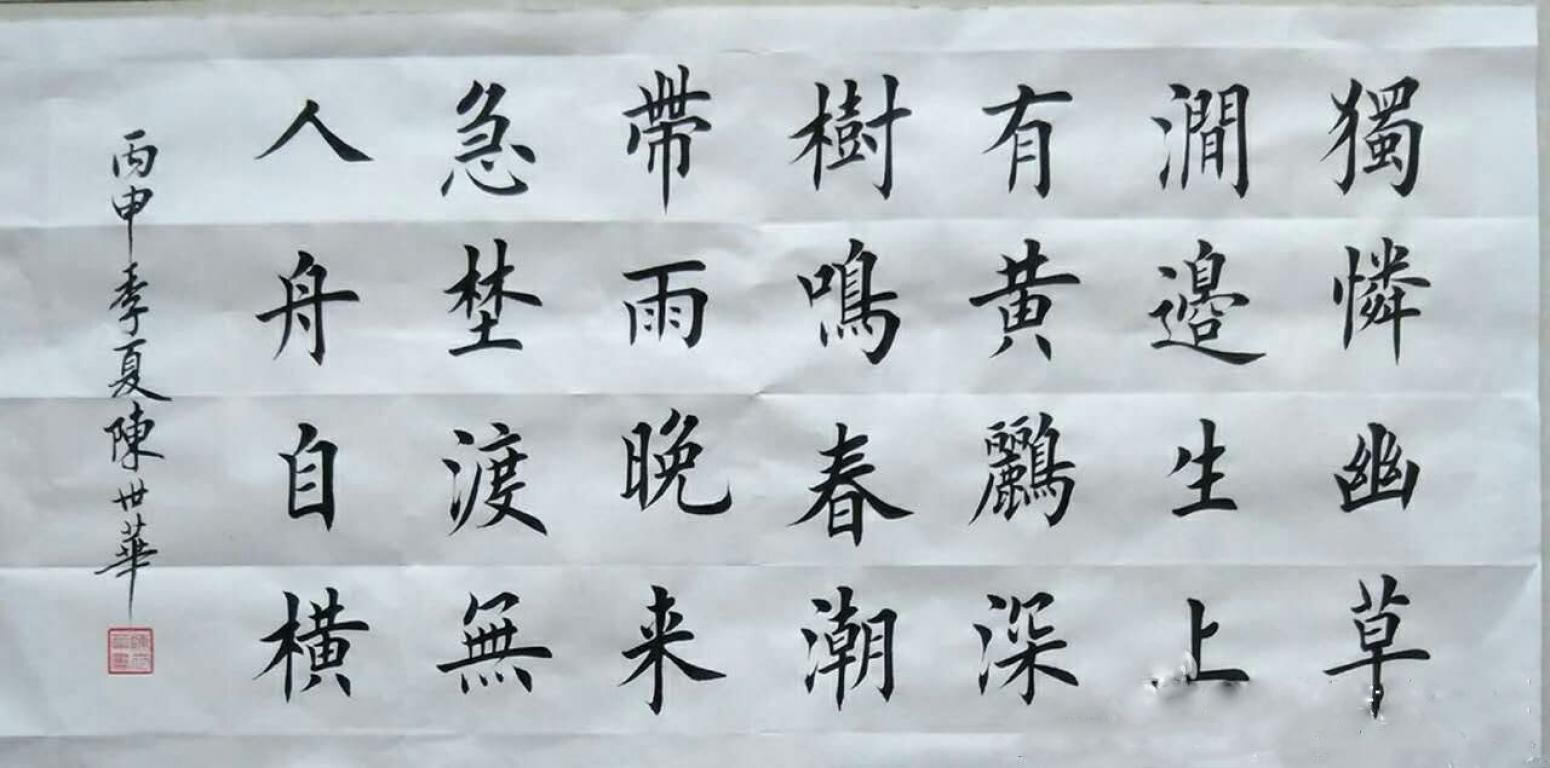 獨憐幽草
澗邊生上
有黃鸝深
樹鳴春潮
帶雨晚来
急埜渡無
人舟自橫
丙申季夏陳世華